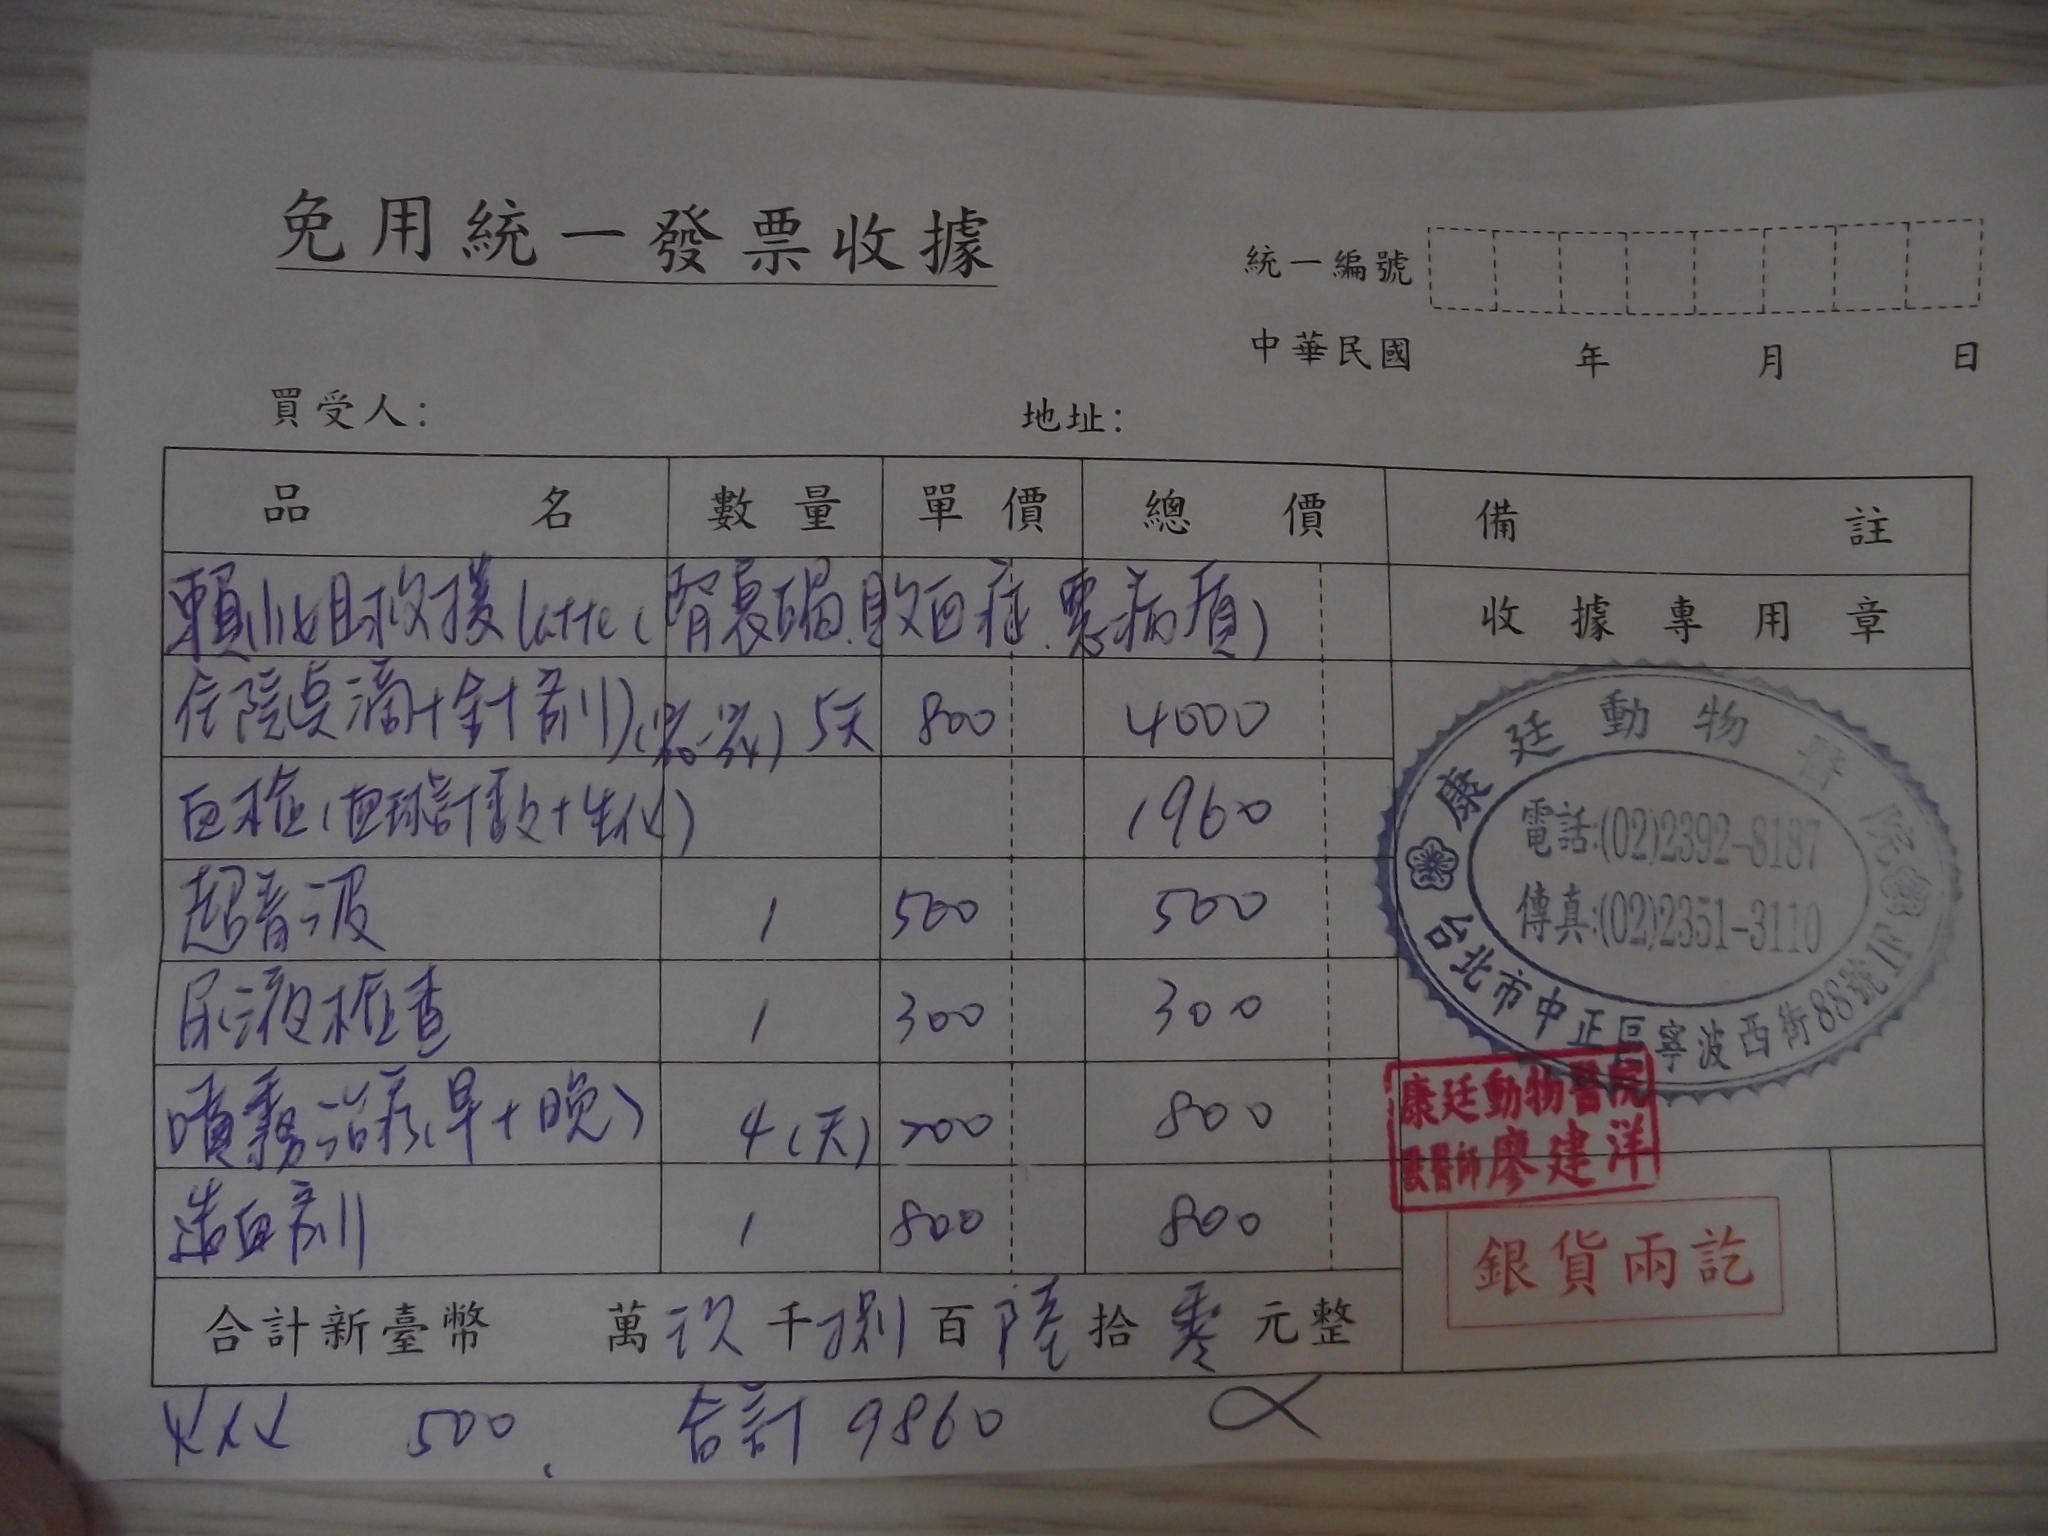 免用統一發票收據
統一編號
中華民國 年 月 日
買受人： 地址：
品名 數量 單價 總價 備註
賴小姐救援latte(腎衰竭.敗血症.鼻病漬)
收據專用章
住院點滴+針劑 5天 800 4000
血檢(血球計數+生化) 1960
超音波 1 500 500
尿液檢查 1 300 300
噴霧治療(早+晚) 4(天) 200 800
造血劑 1 800 800
合計新臺幣 萬玖千捌百陸拾零元整
500 合計 9860
康廷動物醫院
電話:(02)2392-8187
傳真:(02)2351-3110
台北市中正區寧波西街88號1F
康廷動物醫院
獸醫師廖建洋
銀貨兩訖